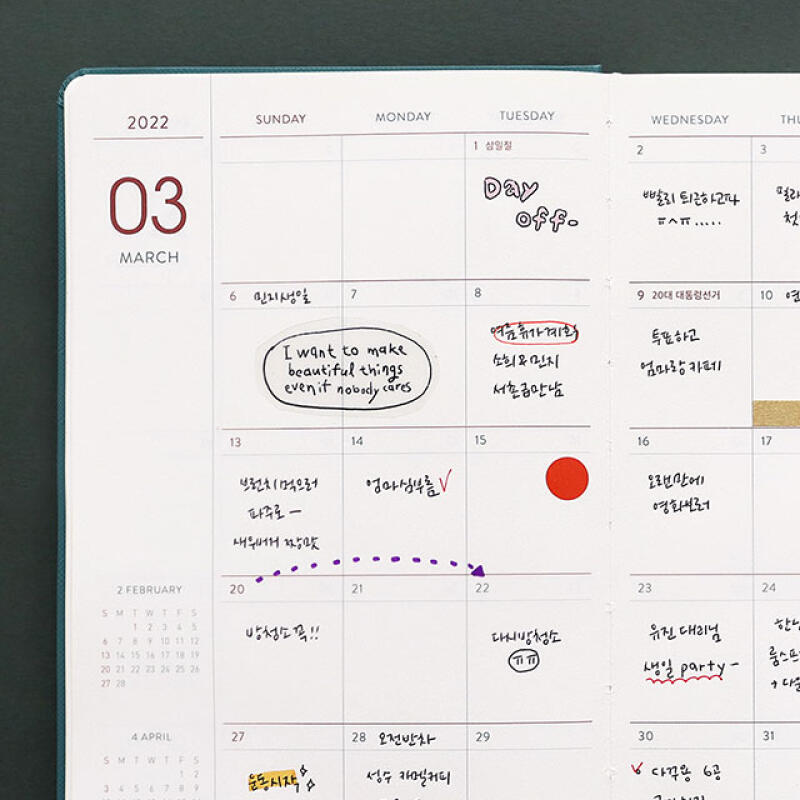 2022
SUNDAY MONDAY TUESDAY WEDNESDAY
03
MARCH
1 삼일절
Day
off-
2
빠빨리 퇴근하고파
ㅠㅅㅠ.....
3
6 민지생일
7
I want to make
beautiful things
even if nobody cares
8
여름휴가계획
소희&민지
서촌급만남
9 20대 대통령선거
투표하고
엄마랑 카페
10
13
브런치먹으러
파주로 -
새우버거 짱맛
14
엄마심부름
15
16
오랜만에
영화보러
17
20
방청소 꼭!!
21
22
다시방청소
ㅠㅠ
23
유진 대리님
생일 party -
24
27
운동시작
28 오전반차
성수 카멜커피
29
30
다꾸용 6공
31
2 FEBRUARY
S M T W T F S
1 2 3 4 5
6 7 8 9 10 11 12
13 14 15 16 17 18 19
20 21 22 23 24 25 26
27 28
4 APRIL
S M T W T F S
1 2
3 4 5 6 7 8 9